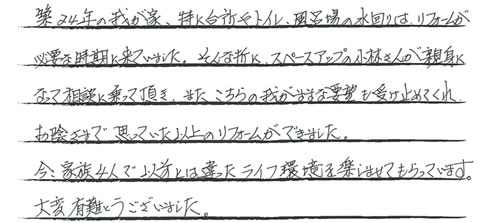 築24年の我が家、特に台所やトイレ、風呂場の水回りは、リフォームが
必要な時期に来ていました。そんな折に、スペースアップの小林さんが親身に
なって相談に乗って頂き、また こちらの我がままな要望も受け止めてくれ
お陰さまで思っていた以上のリフォームができました。
今は家族4人で以前とは違ったライフ環境を楽しませてもらっています。
大変有難とうございました。